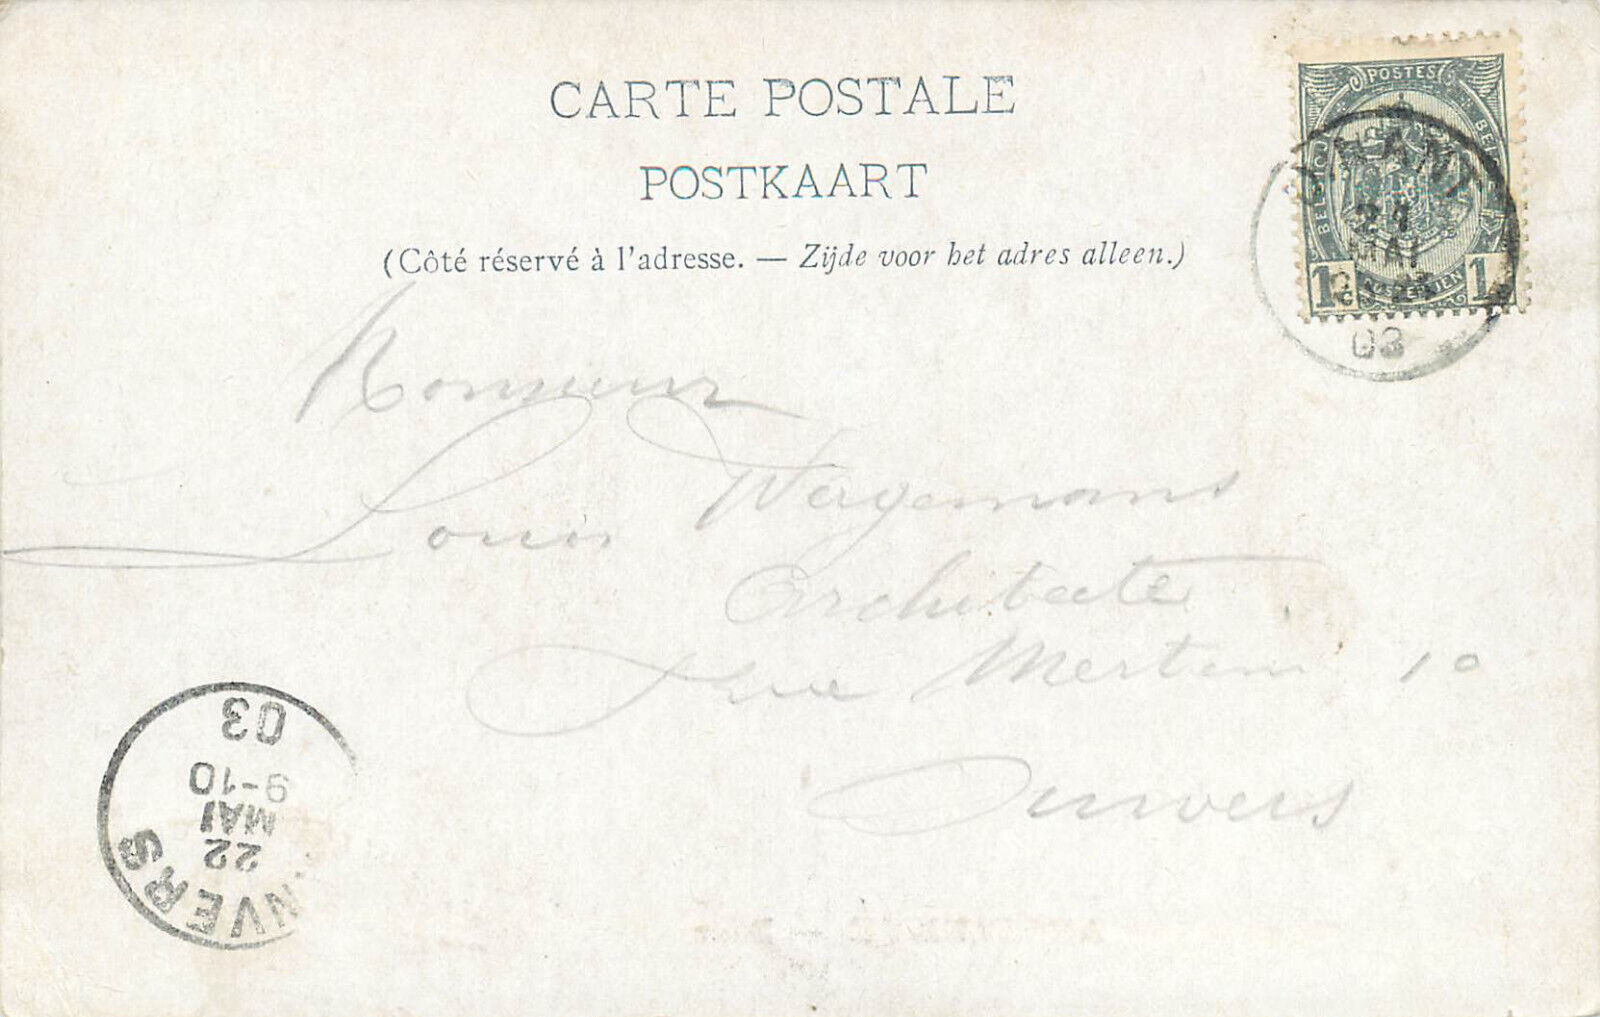 CARTE POSTALE
POSTKAART
(Côté réservé à l'adresse. — Zijde voor het adres alleen.)
POSTES
BELGIQUE
BELGIË
1 c 1
DINANT
21
MAI
03
Monsieur
Louis Wagemans
Architecte
Rue Mertens 10
Anvers
03
9-10
MAI
22
ANVERS